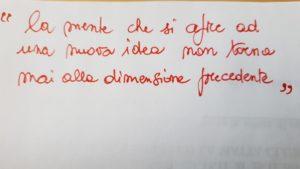 “ la mente che si apre ad
una nuova idea non torna
mai alla dimensione precedente „